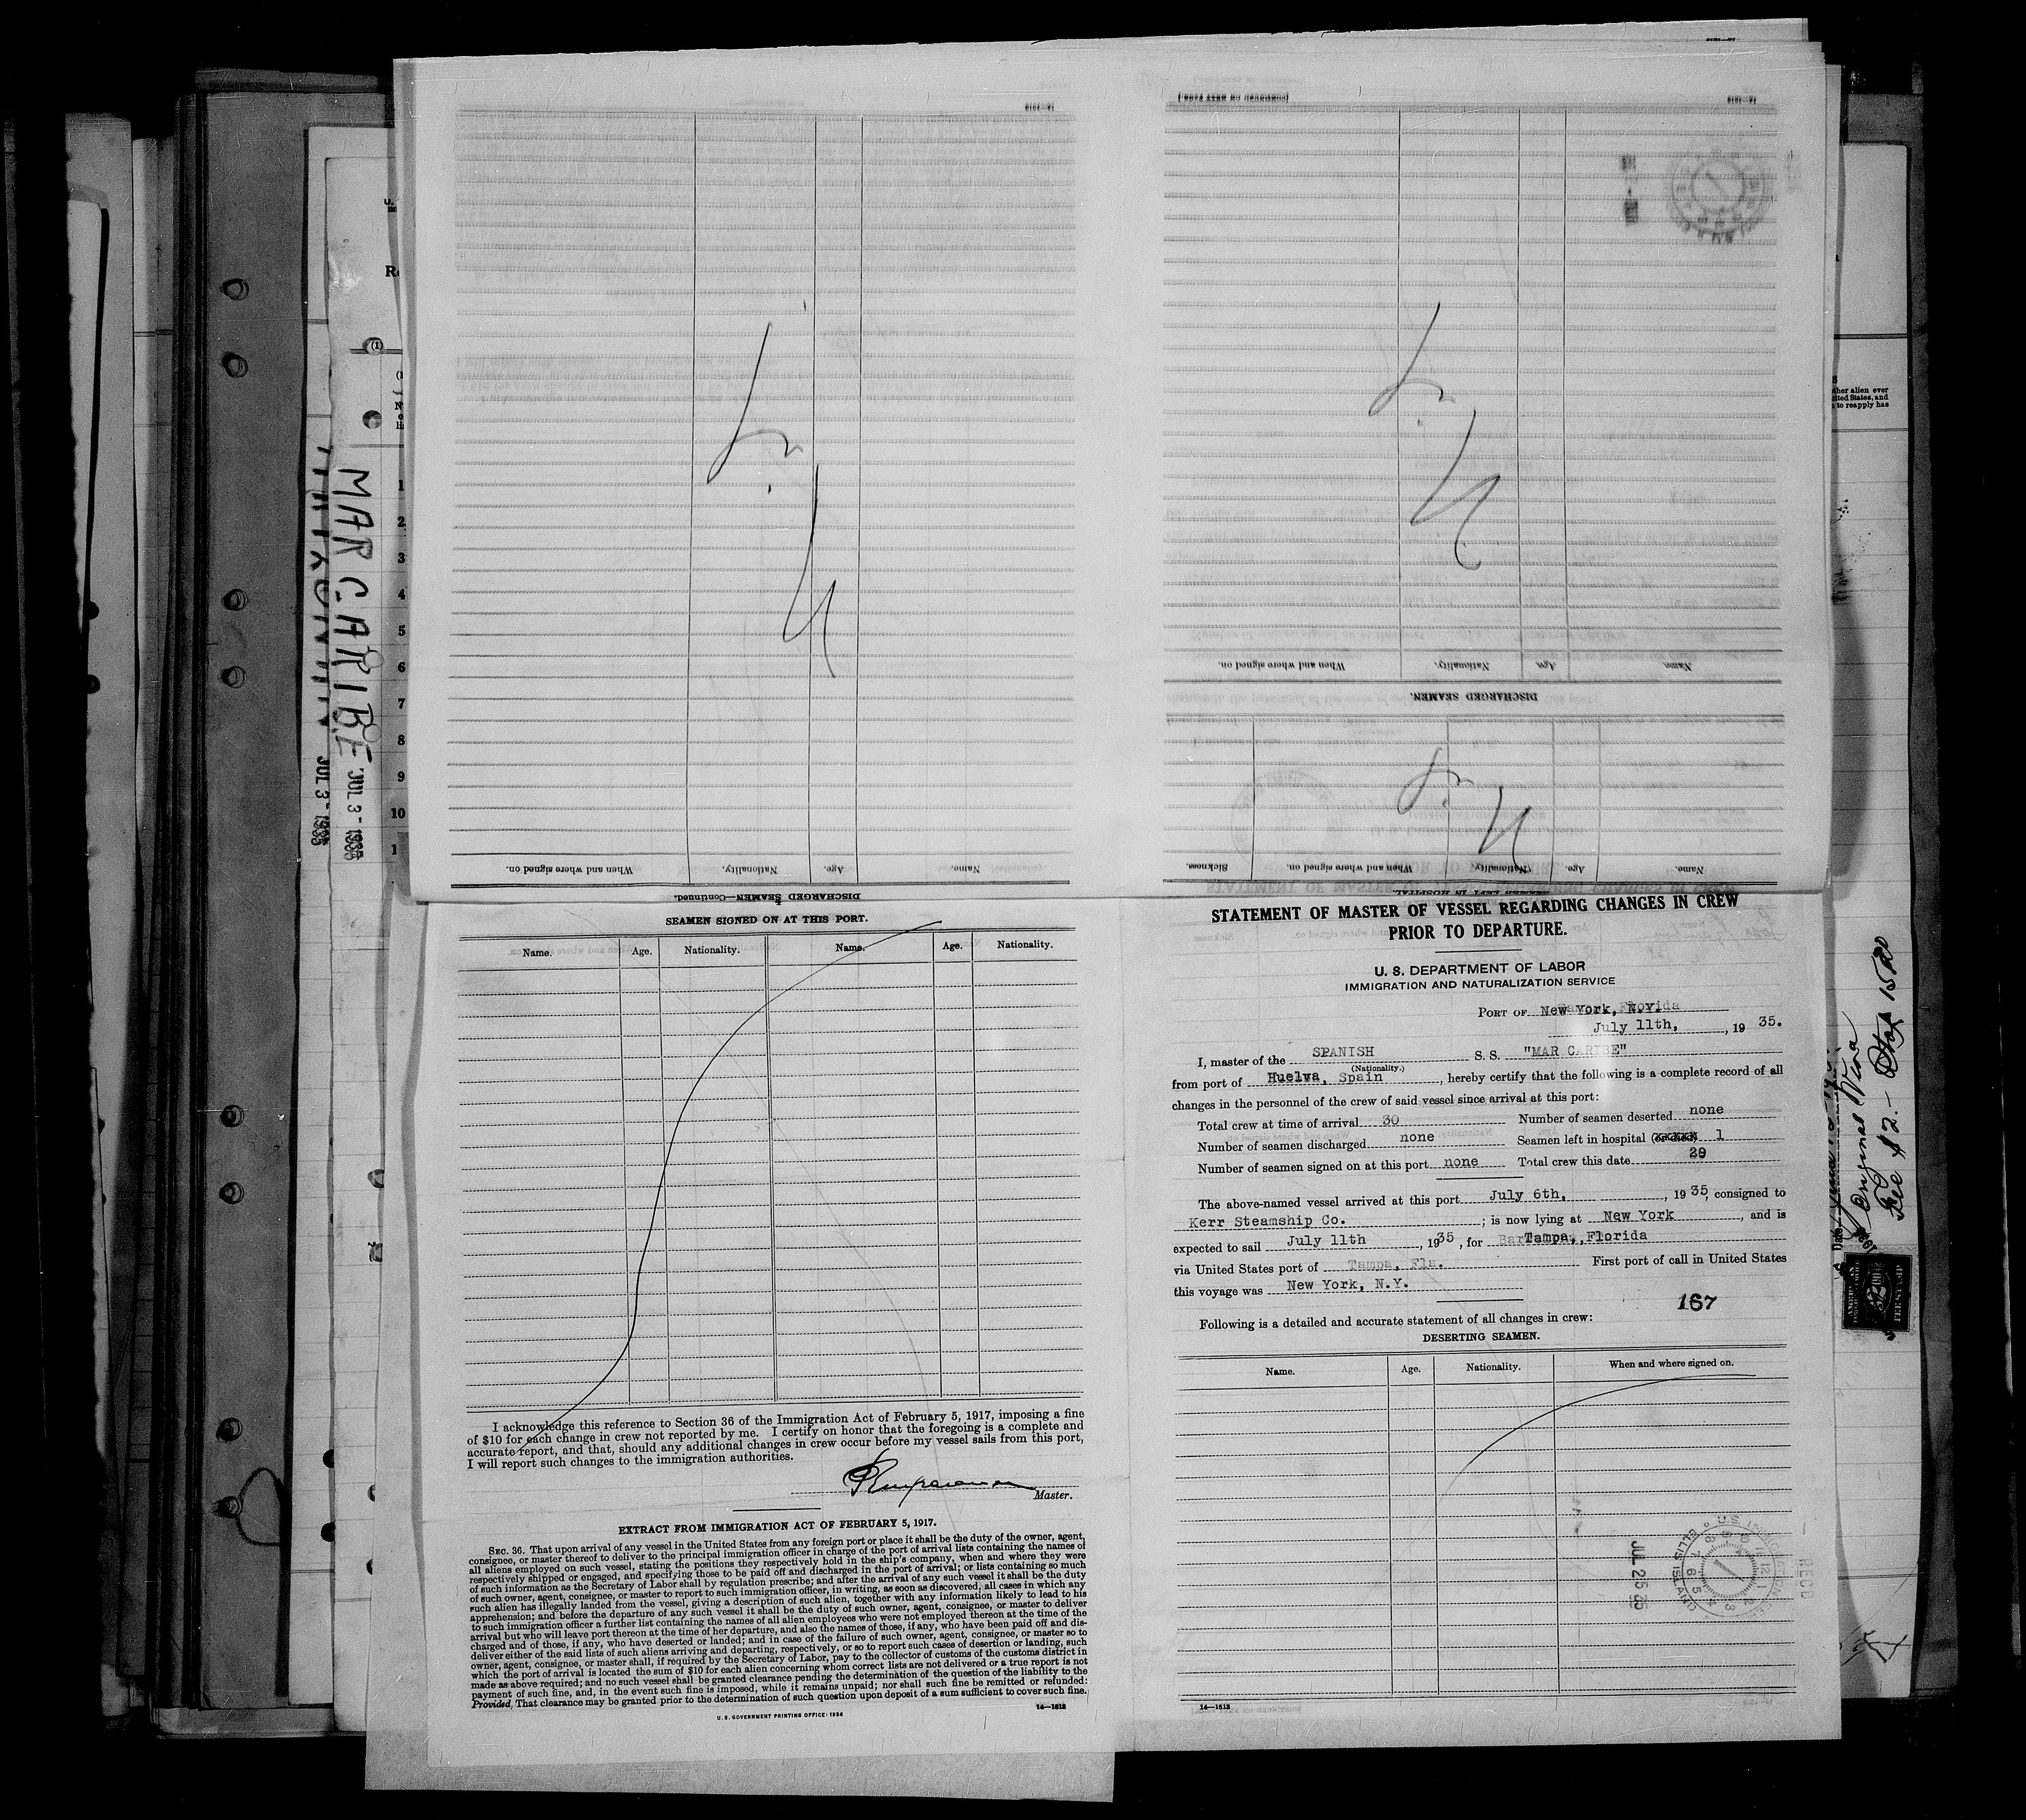 MAR CARIBE JUL 3- 1935
JUL 3- 1935
1
2
3
4
5
6
7
8
9
10
(1)
14—1613
[CONTINUED ON NEXT PAGE.]
14—1613
When and where signed on.
Nationality.
Age.
Name.
DISCHARGED SEAMEN—Continued.
When and where signed on.
Nationality.
Age.
Name.
DISCHARGED SEAMEN.
Sickness.
When and where signed on.
Nationality.
Age.
Name.
SEAMEN SIGNED ON AT THIS PORT.
Name. Age. Nationality. Name. Age. Nationality.
I acknowledge this reference to Section 36 of the Immigration Act of February 5, 1917, imposing a fine
of $10 for each change in crew not reported by me. I certify on honor that the foregoing is a complete and
accurate report, and that, should any additional changes in crew occur before my vessel sails from this port,
I will report such changes to the immigration authorities.
Master.
EXTRACT FROM IMMIGRATION ACT OF FEBRUARY 5, 1917.
SEC. 36. That upon arrival of any vessel in the United States from any foreign port or place it shall be the duty of the owner, agent,
consignee, or master thereof to deliver to the principal immigration officer in charge of the port of arrival lists containing the names of
all aliens employed on such vessel, stating the positions they respectively hold in the ship's company, when and where they were
respectively shipped or engaged, and specifying those to be paid off and discharged in the port of arrival; or lists containing so much
of such information as the Secretary of Labor shall by regulation prescribe; and after the arrival of any such vessel it shall be the duty
of such owner, agent, consignee, or master to report to such immigration officer, in writing, as soon as discovered, all cases in which any
such alien has illegally landed from the vessel, giving a description of such alien, together with any information likely to lead to his
apprehension; and before the departure of any such vessel it shall be the duty of such owner, agent, consignee, or master to deliver
to such immigration officer a further list containing the names of all alien employees who were not employed thereon at the time of the
arrival but who will leave port thereon at the time of her departure, and also the names of those, if any, who have been paid off and dis-
charged and of those, if any, who have deserted or landed; and in case of the failure of such owner, agent, consignee, or master so to
deliver either of the said lists of such aliens arriving and departing, respectively, or so to report such cases of desertion or landing, such
owner, agent, consignee, or master shall, if required by the Secretary of Labor, pay to the collector of customs of the customs district in
which the port of arrival is located the sum of $10 for each alien concerning whom correct lists are not delivered or a true report is not
made as above required; and no such vessel shall be granted clearance pending the determination of the question of the liability to the
payment of such fine, and, in the event such fine is imposed, while it remains unpaid; nor shall such fine be remitted or refunded:
Provided, That clearance may be granted prior to the determination of such question upon deposit of a sum sufficient to cover such fine.
U. S. GOVERNMENT PRINTING OFFICE: 1934 14—1613
STATEMENT OF MASTER OF VESSEL REGARDING CHANGES IN CREW
PRIOR TO DEPARTURE.
U. S. DEPARTMENT OF LABOR
IMMIGRATION AND NATURALIZATION SERVICE
PORT OF New York, N.Y.
July 11th, , 19 35.
I, master of the SPANISH S. S. "MAR CARIBE"
(Nationality.)
from port of Huelva, Spain , hereby certify that the following is a complete record of all
changes in the personnel of the crew of said vessel since arrival at this port:
Total crew at time of arrival 30 Number of seamen deserted none
Number of seamen discharged none Seamen left in hospital (or died) 1
Number of seamen signed on at this port none Total crew this date 29
The above-named vessel arrived at this port July 6th, , 1935, consigned to
Kerr Steamship Co. ; is now lying at New York , and is
expected to sail July 11th , 1935 , for Tampa, Florida
via United States port of Tampa, Fla. First port of call in United States
this voyage was New York, N.Y.
167
Following is a detailed and accurate statement of all changes in crew:
DESERTING SEAMEN.
Name. Age. Nationality. When and where signed on.
RECD
U.S. IMMIGRATION SERVICE ELLIS ISLAND
JUL 25 35
14—1613
[CONTINUED ON NEXT PAGE.]
ther alien ever
ited States, and
to reapply has
Fee $2.-